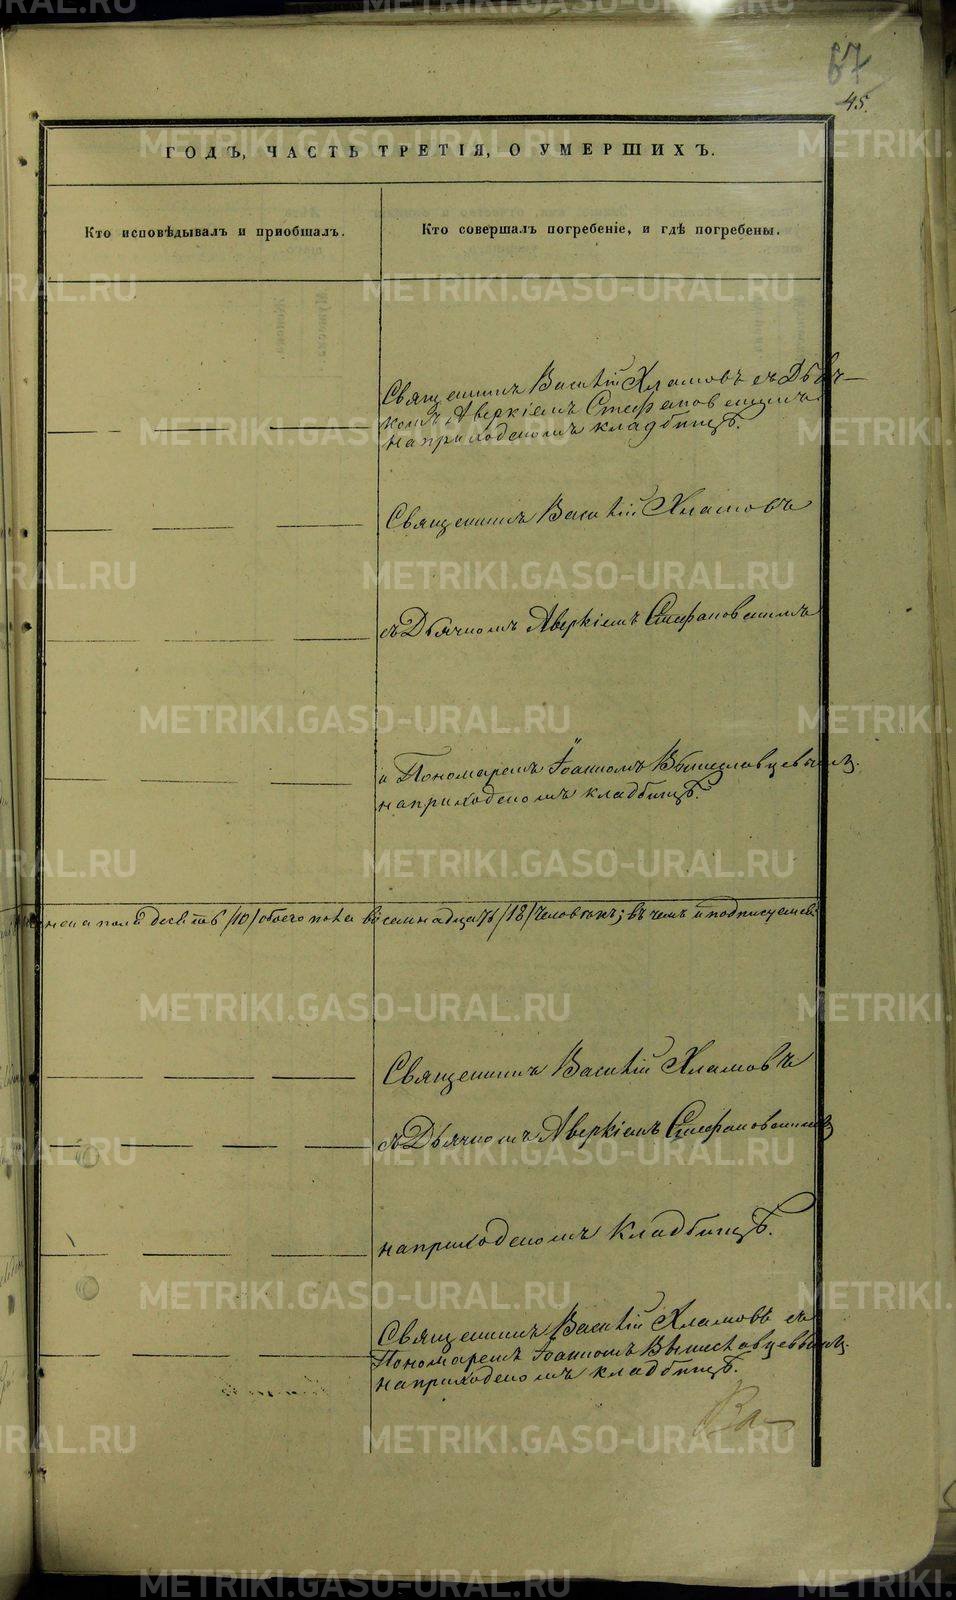 67
45.
ГОДЪ, ЧАСТЬ ТРЕТІЯ, О УМЕРШИХЪ.
Кто исповѣдывалъ и пріобщалъ.
Кто совершалъ погребеніе, и гдѣ погребены.
Священникъ Василій Хламовъ съ Дьяч-
комъ Аверкіемъ Стефановскимъ
на приходскомъ кладбищѣ.
Священникъ Василій Хламовъ
съ Дьячкомъ Аверкіемъ Стефановскимъ
и Пономаремъ Іоанномъ Вышеславцевымъ.
на приходскомъ кладбищѣ.
женска пола десять /10/ обоего пола восемнадцать /18/ человѣкъ; въ чемъ и подписуемся:
Священникъ Василій Хламовъ
съ Дьячкомъ Аверкіемъ Стефановскимъ
на приходскомъ кладбищѣ.
Священникъ Василій Хламовъ съ
Пономаремъ Іоанномъ Вышеславцевымъ.
на приходскомъ кладбищѣ.
Ва-
METRIKI.GASO-URAL.RU